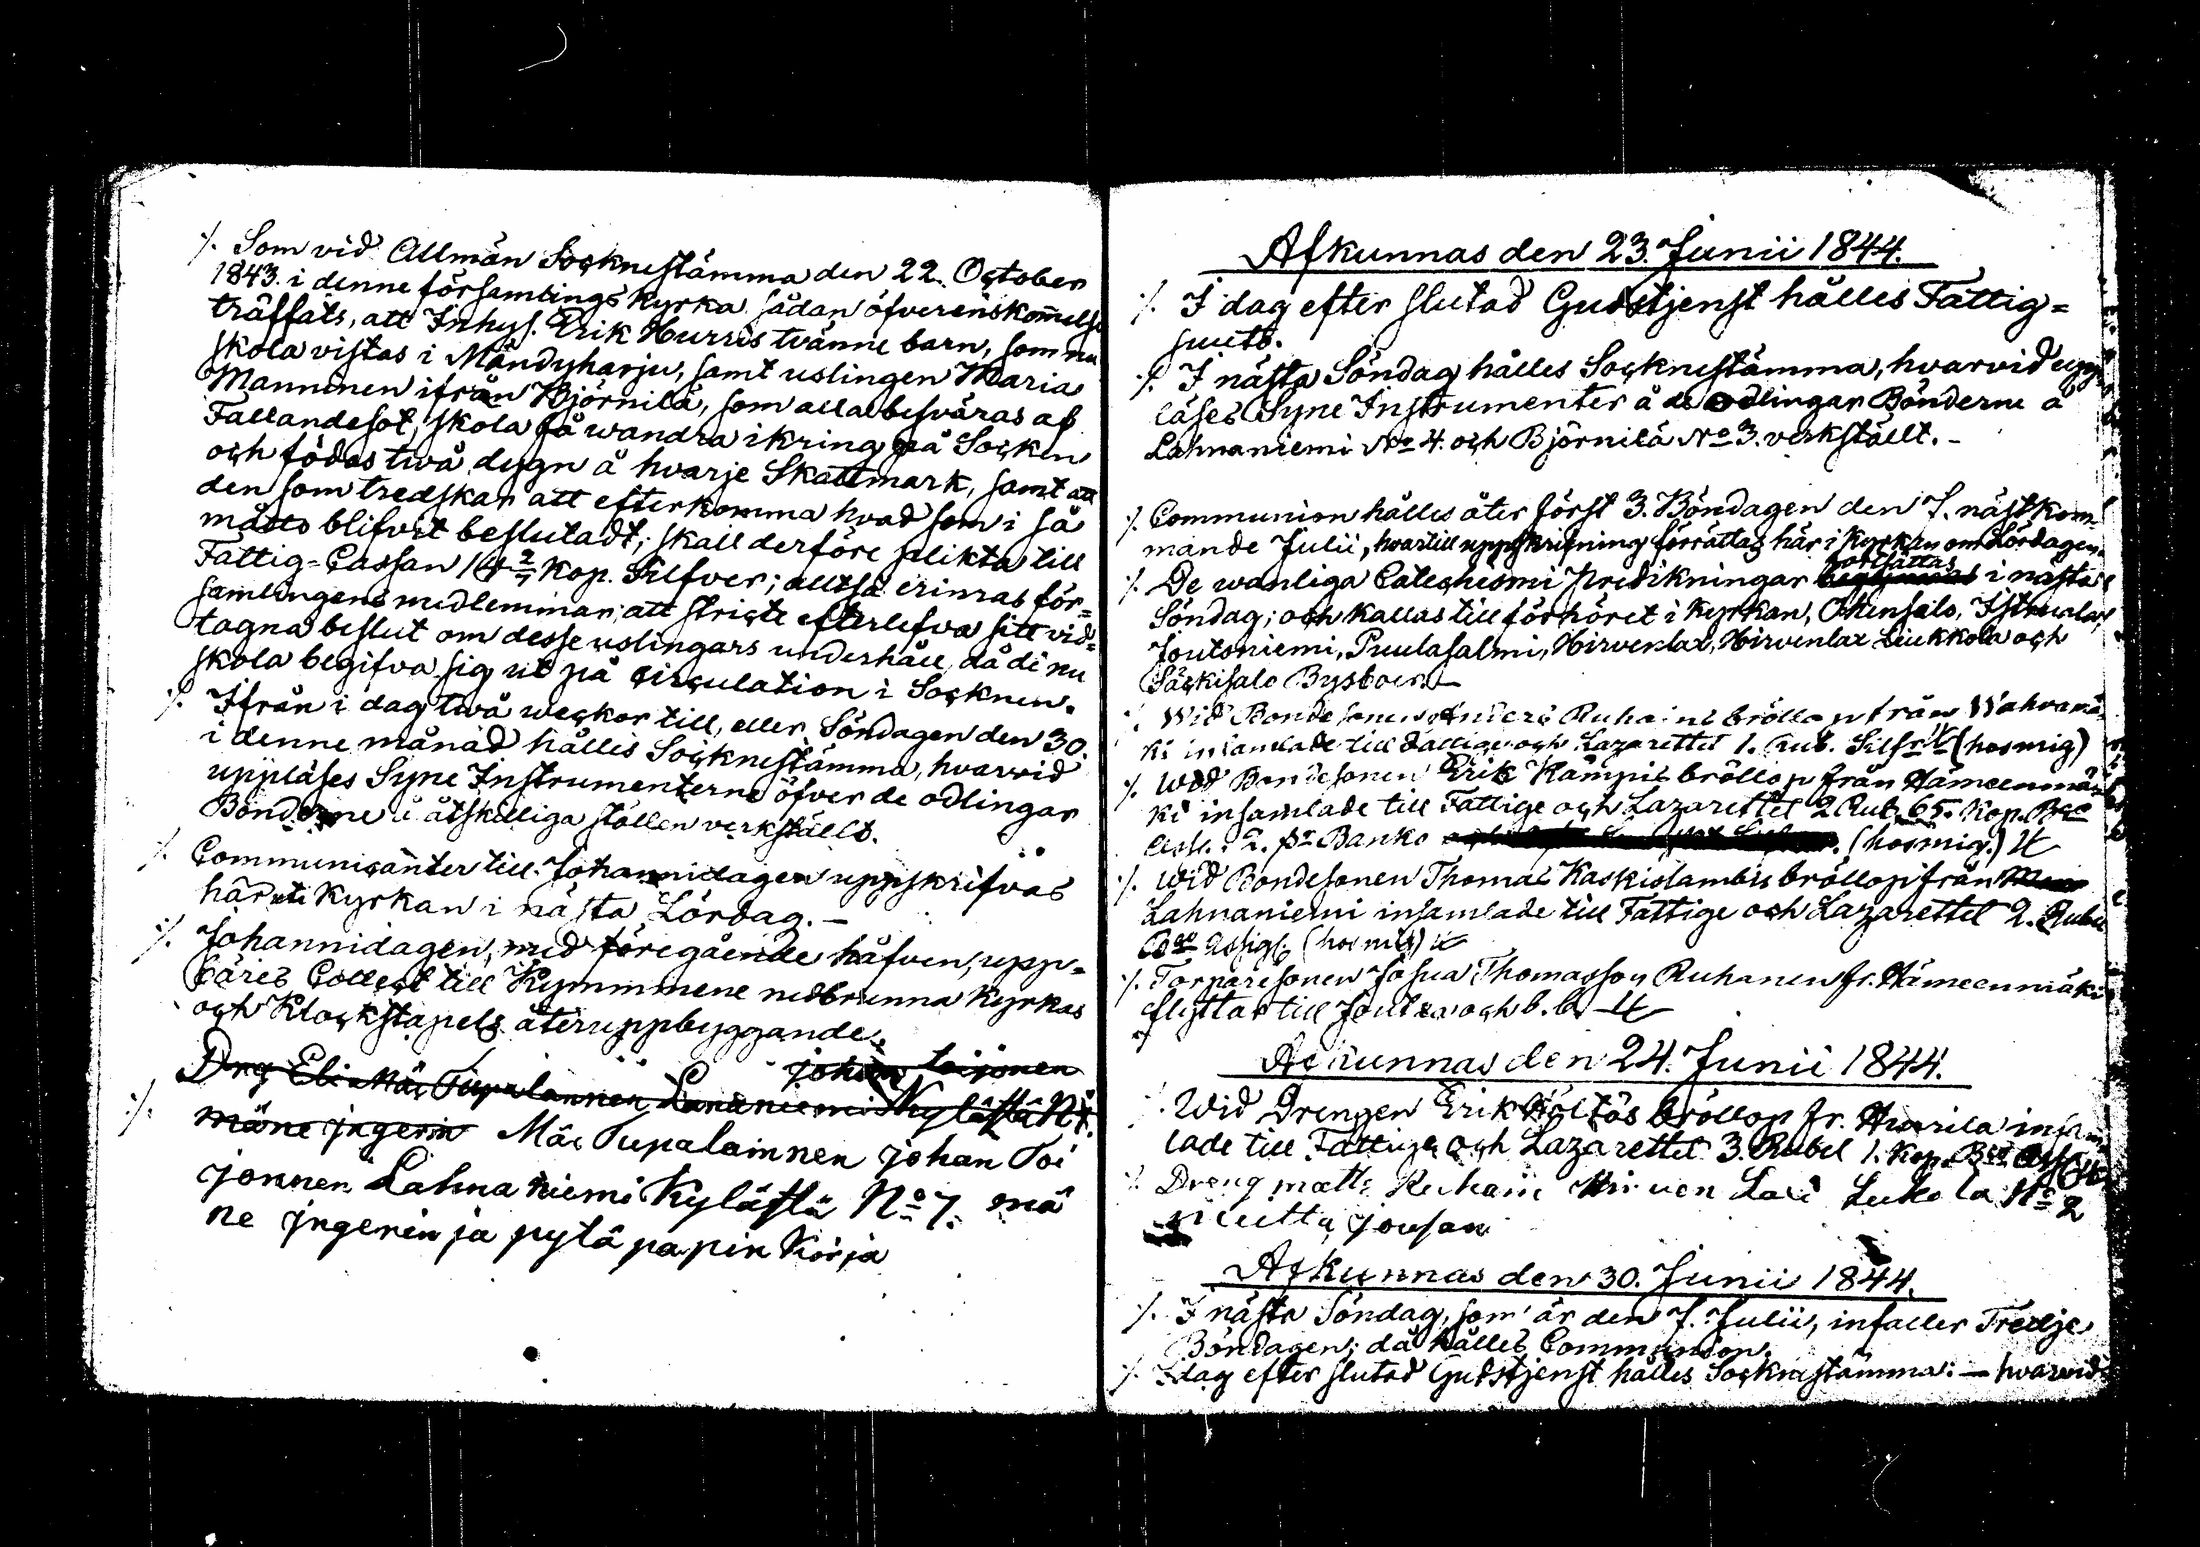 ·/. Som vid Allmän Socknestämma den 22. October
1843. i denne församlings Kyrka sådan öfverenskommelse
träffats, att Inhys. Erik Hurris tvänne barn, som nu
skola vistas i Mändyharju, samt uslingen Maria
Manninen ifrån Björnilä, som alla besväras af
Fallandesot, skola få wandra ikring på Socken
och födas twå dygn å hvarje Skattmark, samt att
den som tredskar att efterkomma hvad som i så
måtto blifvit beslutadt, skall derföre plikta till
Fattig-Cassan 14 2/7 Kop. Silfver; alltså erinras för-
samlingens medlemmar, att stricte efterlefva sitt vid-
tagna beslut om desse uslingars underhåll, då de nu
skola begifva sig ut på circulation i Socknen.
·/. Ifrån i dag twå weckor till, eller Söndagen den 30.
i denne månad hålles Socknestämma, hvarvid
uppläses Syne Instrumenterne öfver de odlingar
Bönderne å åtskilliga ställen verkställt.
·/. Communicanter till Johannidagen uppskrifvas
här i Kyrkan i nästa Lördag. –
·/. Johannidagen, med föregående håfven, upp-
bäres Collect till Kymmene nedbrunna Kyrkas
och Klockstapels återuppbyggande.
johan Toijonen
Drg Eli Mär Tupalainnen Lananiemi Kylästä N 7.
·/. mäne jngerin Mär Tupalainnen johan Toi
jonnen Lahna niemi Kylästä No 7. mä
ne jngerin ja pytä papin Kirja
Afkunnas den 23. Junii 1844.
·/. I dag efter slutad Gudstjenst hålles Fattig-
·/. I nästa Söndag hålles Socknestämma, hvarvid upp-
läses Syne Instrumenter å de odlingar Bönderne å
Lahnaniemi No 4. och Björnilä No 3. verkställt. –
·/. Communion hålles åter först 3. Böndagen den 7. nästkom-
mande Julii, hvartill uppskrifning förrättas här i Kyrkan om Lördagen.
fortsättas
·/. De wanliga Catechismi Predikningar i nästa
Söndag; och kallas till förhöret i Kyrkan, Ollensalo, Istrualax
Joutsniemi, Puulasalmi, Hirvenlax, Hirvenlax Leukkola och
Säckisalo Bysboer. –
·/. Wid Bondesonen Anders Ruhains bröllop från Wahvamä-
ki insamlade till Fattige och Lazarettet 1. Rub. Silfr (hosmig)
·/. Wid Bondesonen Erik Kämpis bröllop från Hämeenmä-
ki insamlade till Fattige och Lazarettet 2 Rub. 65. Kop. Bco
Banko (hosmig.)
·/. Wid Bondesonen Thomas Kaskislambis bröllop från
Lahnaniemi insamlade till Fattige och Lazarettet 2. Rubel
Bco Assign. (hosmig)
·/. Torparesonen Josua Thomasson Ruhanen fr. Hämeenmäki
flyttar till Joutsa och b. b.
Afkunnas den 24. Junii 1844.
·/. Wid Drengen Erik Höltäs bröllop fr. Hurila insam-
lade till Fattige och Lazarettet 3. Rubel 1. Kop. Bco Ass
·/. Dreng matts Ruhain Hirven Laxi Lukola No 2
muutta joutsan
Afkunnas den 30. Junii 1844.
·/. I nästa Söndag, som är den 7. Julii, infaller Tredje
Böndagen; då hålles Communion.
·/. I dag efter slutad Gudstjenst hålles Socknestämma: – hvarvid